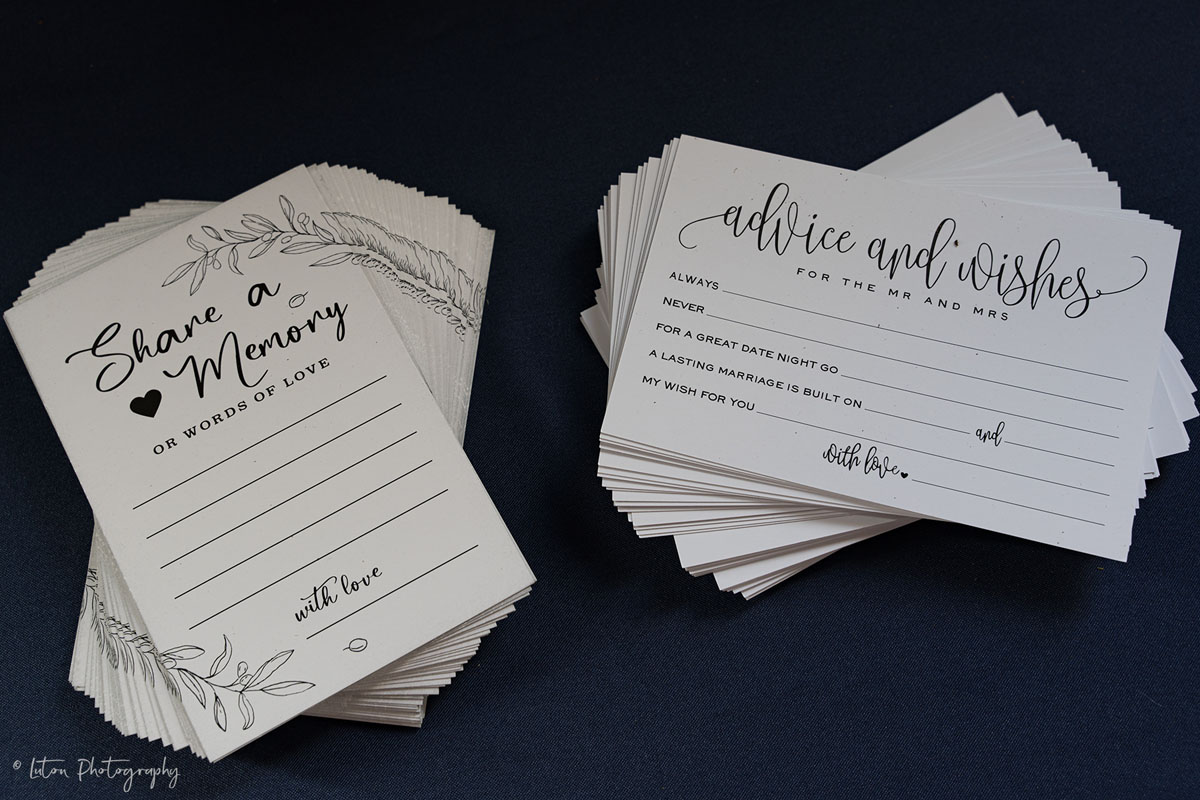 Share a
Memory
OR WORDS OF LOVE
with love
advice and wishes
FOR THE MR AND MRS
ALWAYS
NEVER
FOR A GREAT DATE NIGHT GO
A LASTING MARRIAGE IS BUILT ON and
MY WISH FOR YOU
with love
© Luton Photography